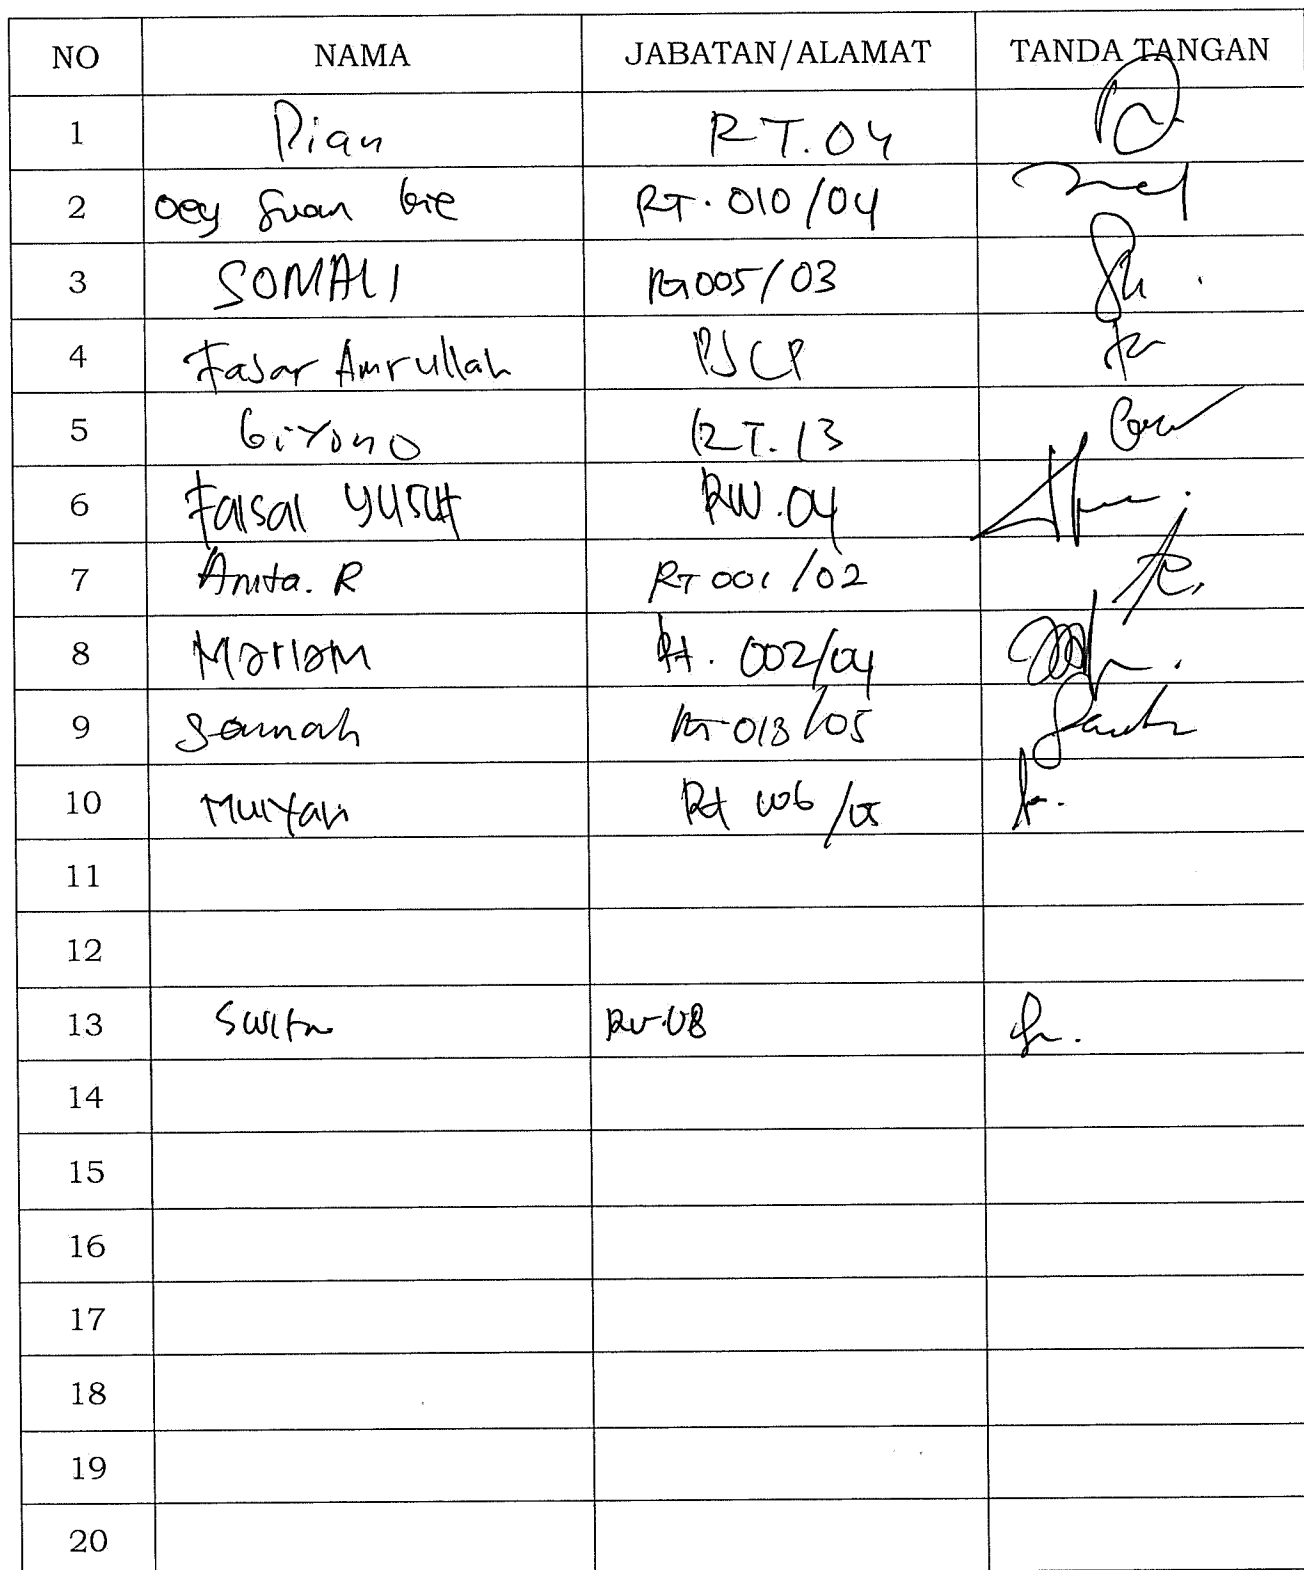 NO NAMA JABATAN/ALAMAT TANDA TANGAN
1 Dian RT.04
2 Oey Suan Gie RT. 010/04
3 SOMALI RT005/03
4 Fajar Amrullah PJLP
5 Giyono RT.13
6 Faisal YUSUF RW.04
7 Anita. R RT 001/02
8 Mariam Rt. 002/04
9 Samah RT 013/05
10 Mulyan Rt 006/05
11
12
13 RW.08
14
15
16
17
18
19
20